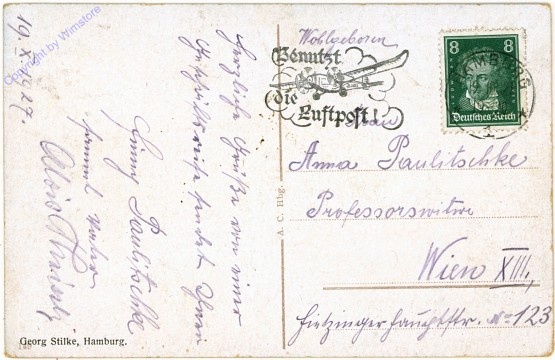 19. X. 1927.
Copyright by Wimstore
Herzliche Grüße von einer
Geschäftsreise sendet Ihnen
Paulitschke
samt Vater
Alois
Georg Stilke, Hamburg.
A. C. Hbg.
Benutzt
die
Luftpost!
8 8
Deutsches Reich
HAMBURG
1
Wohlgeboren
Frau
Anna Paulitschke
Professorswitwe
Wien XIII,
Hietzinger Hauptstr. No 123